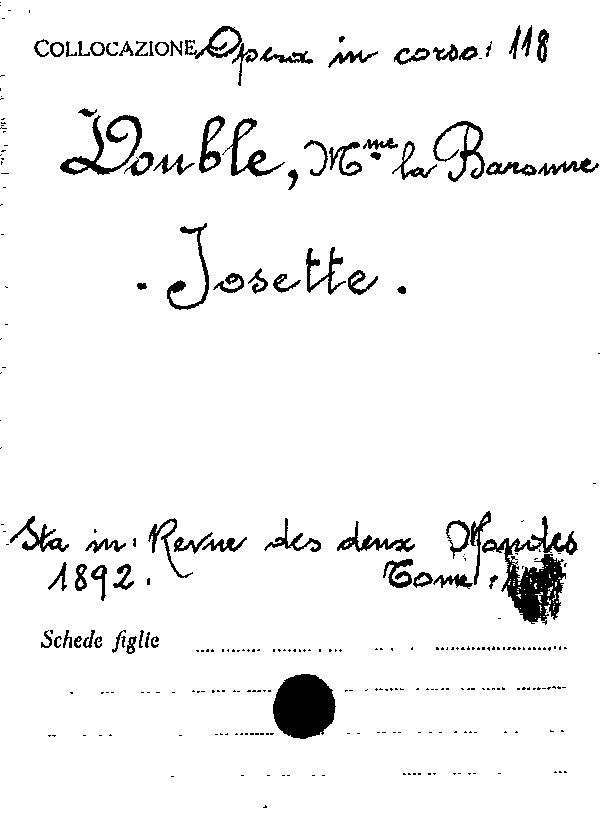 COLLOCAZIONE Opera in corso: 118
Double, Mme la Baronne
. Josette .
Sta in: Revue des deux Mondes
1892. Tome :
Schede figlie